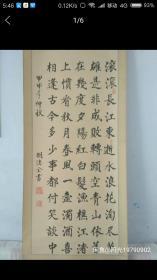 5:46
0.12K/s
4G
93%
1/6
滾滾長江東逝水浪花淘尽英
雄是非成敗轉頭空青山依舊
在幾度夕陽紅白髮漁樵江渚
上慣看秋月春風一壺濁酒喜
相逢古今多少事都付笑談中
甲申年仲秋
阳光19790902